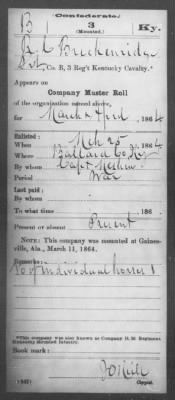 B
Confederate.
3
(Mounted.)
Ky.
J. C. Breckenridge
Sgt., Co. B, 3 Reg't Kentucky Cavalry.*
Appears on
Company Muster Roll
of the organization named above,
for March & April, 1864.
Enlisted:
When Mch 25, 186
Where Ballard Co Ky
By whom Capt
Period War
Last paid:
By whom
To what time , 186 .
Present or absent Present
NOTE: This company was mounted at Gaines-
ville, Ala., March 11, 1864.
Remarks:
No of individual horses 1
*This company was also known as Company H. M. Regiment
Kentucky Mounted Infantry.
Book mark:
Copyist.